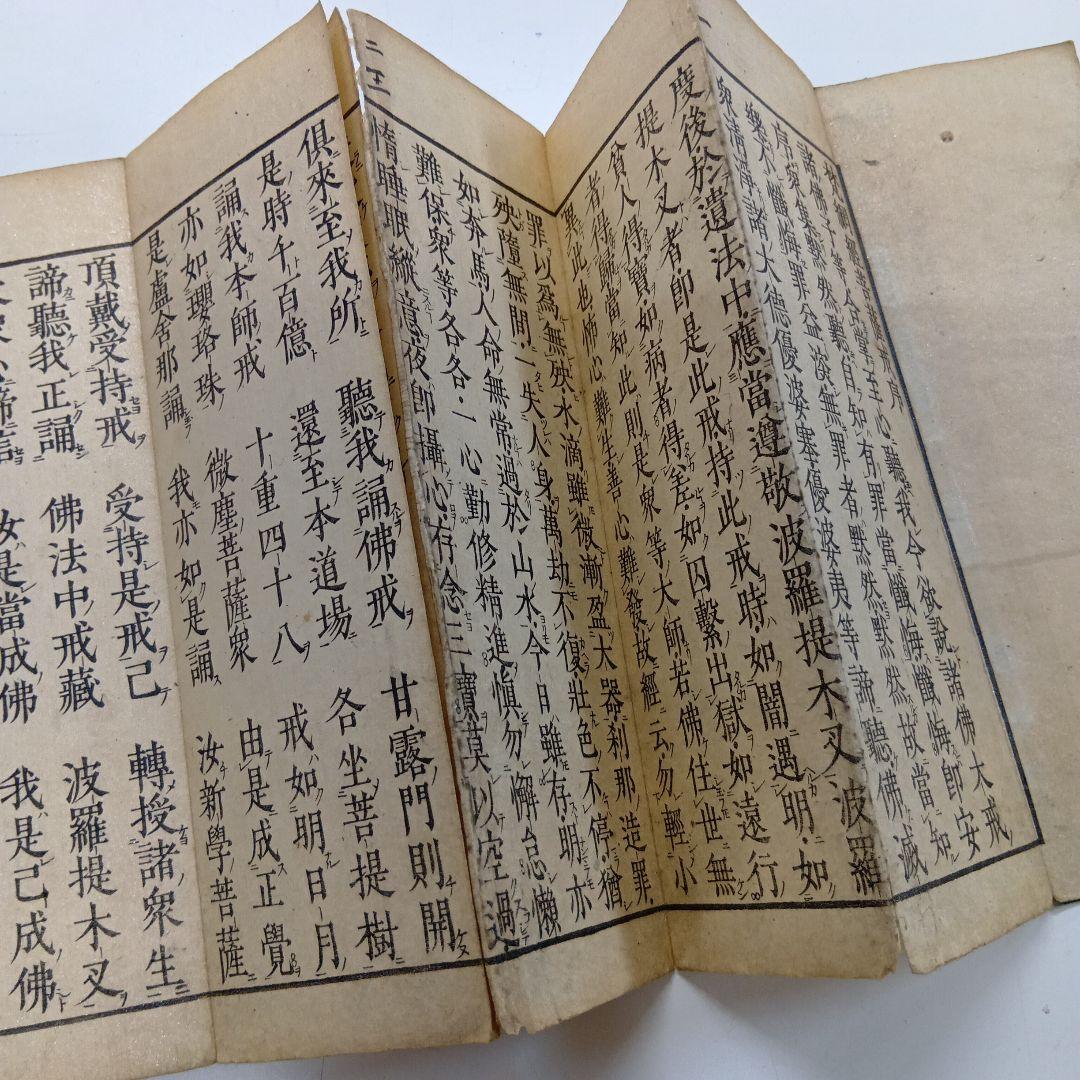 梵網經菩薩戒序
諸佛子等合掌至心聽我今欲說諸佛大戒
序衆集默然聽自知有罪當懺悔懺悔即安
樂不懺悔罪益深無罪者默然默然故當知
衆清淨諸大德優婆塞優婆夷等諦聽佛滅
度後於遺法中應當遵敬波羅提木叉波羅
提木叉者即是此戒持此戒時如闇遇明如
貧人得寶如病者得差如囚繫出獄如遠行
者得歸當知此則是衆等大師若佛住世無
異此也怖心難生善心難發故經云勿輕小
罪以爲無殃水滴雖微漸盈大器刹那造罪
殃墮無間一失人身萬劫不復壯色不停猶
如奔馬人命無常過於山水今日雖存明亦
難保衆等各各一心勤修精進愼勿懈怠懶
惰睡眠縱意夜即攝心存念三寶莫以空過
二 王
俱來至我所 聽我誦佛戒 甘露門則開
是時千百億 還至本道場 各坐菩提樹
誦我本師戒 十重四十八 戒如明日月
亦如瓔珞珠 微塵菩薩衆 由是成正覺
是盧舍那誦 我亦如是誦 汝新學菩薩
頂戴受持戒 受持是戒已 轉授諸衆生
諦聽我正誦 佛法中戒藏 波羅提木叉
汝是當成佛 我是已成佛